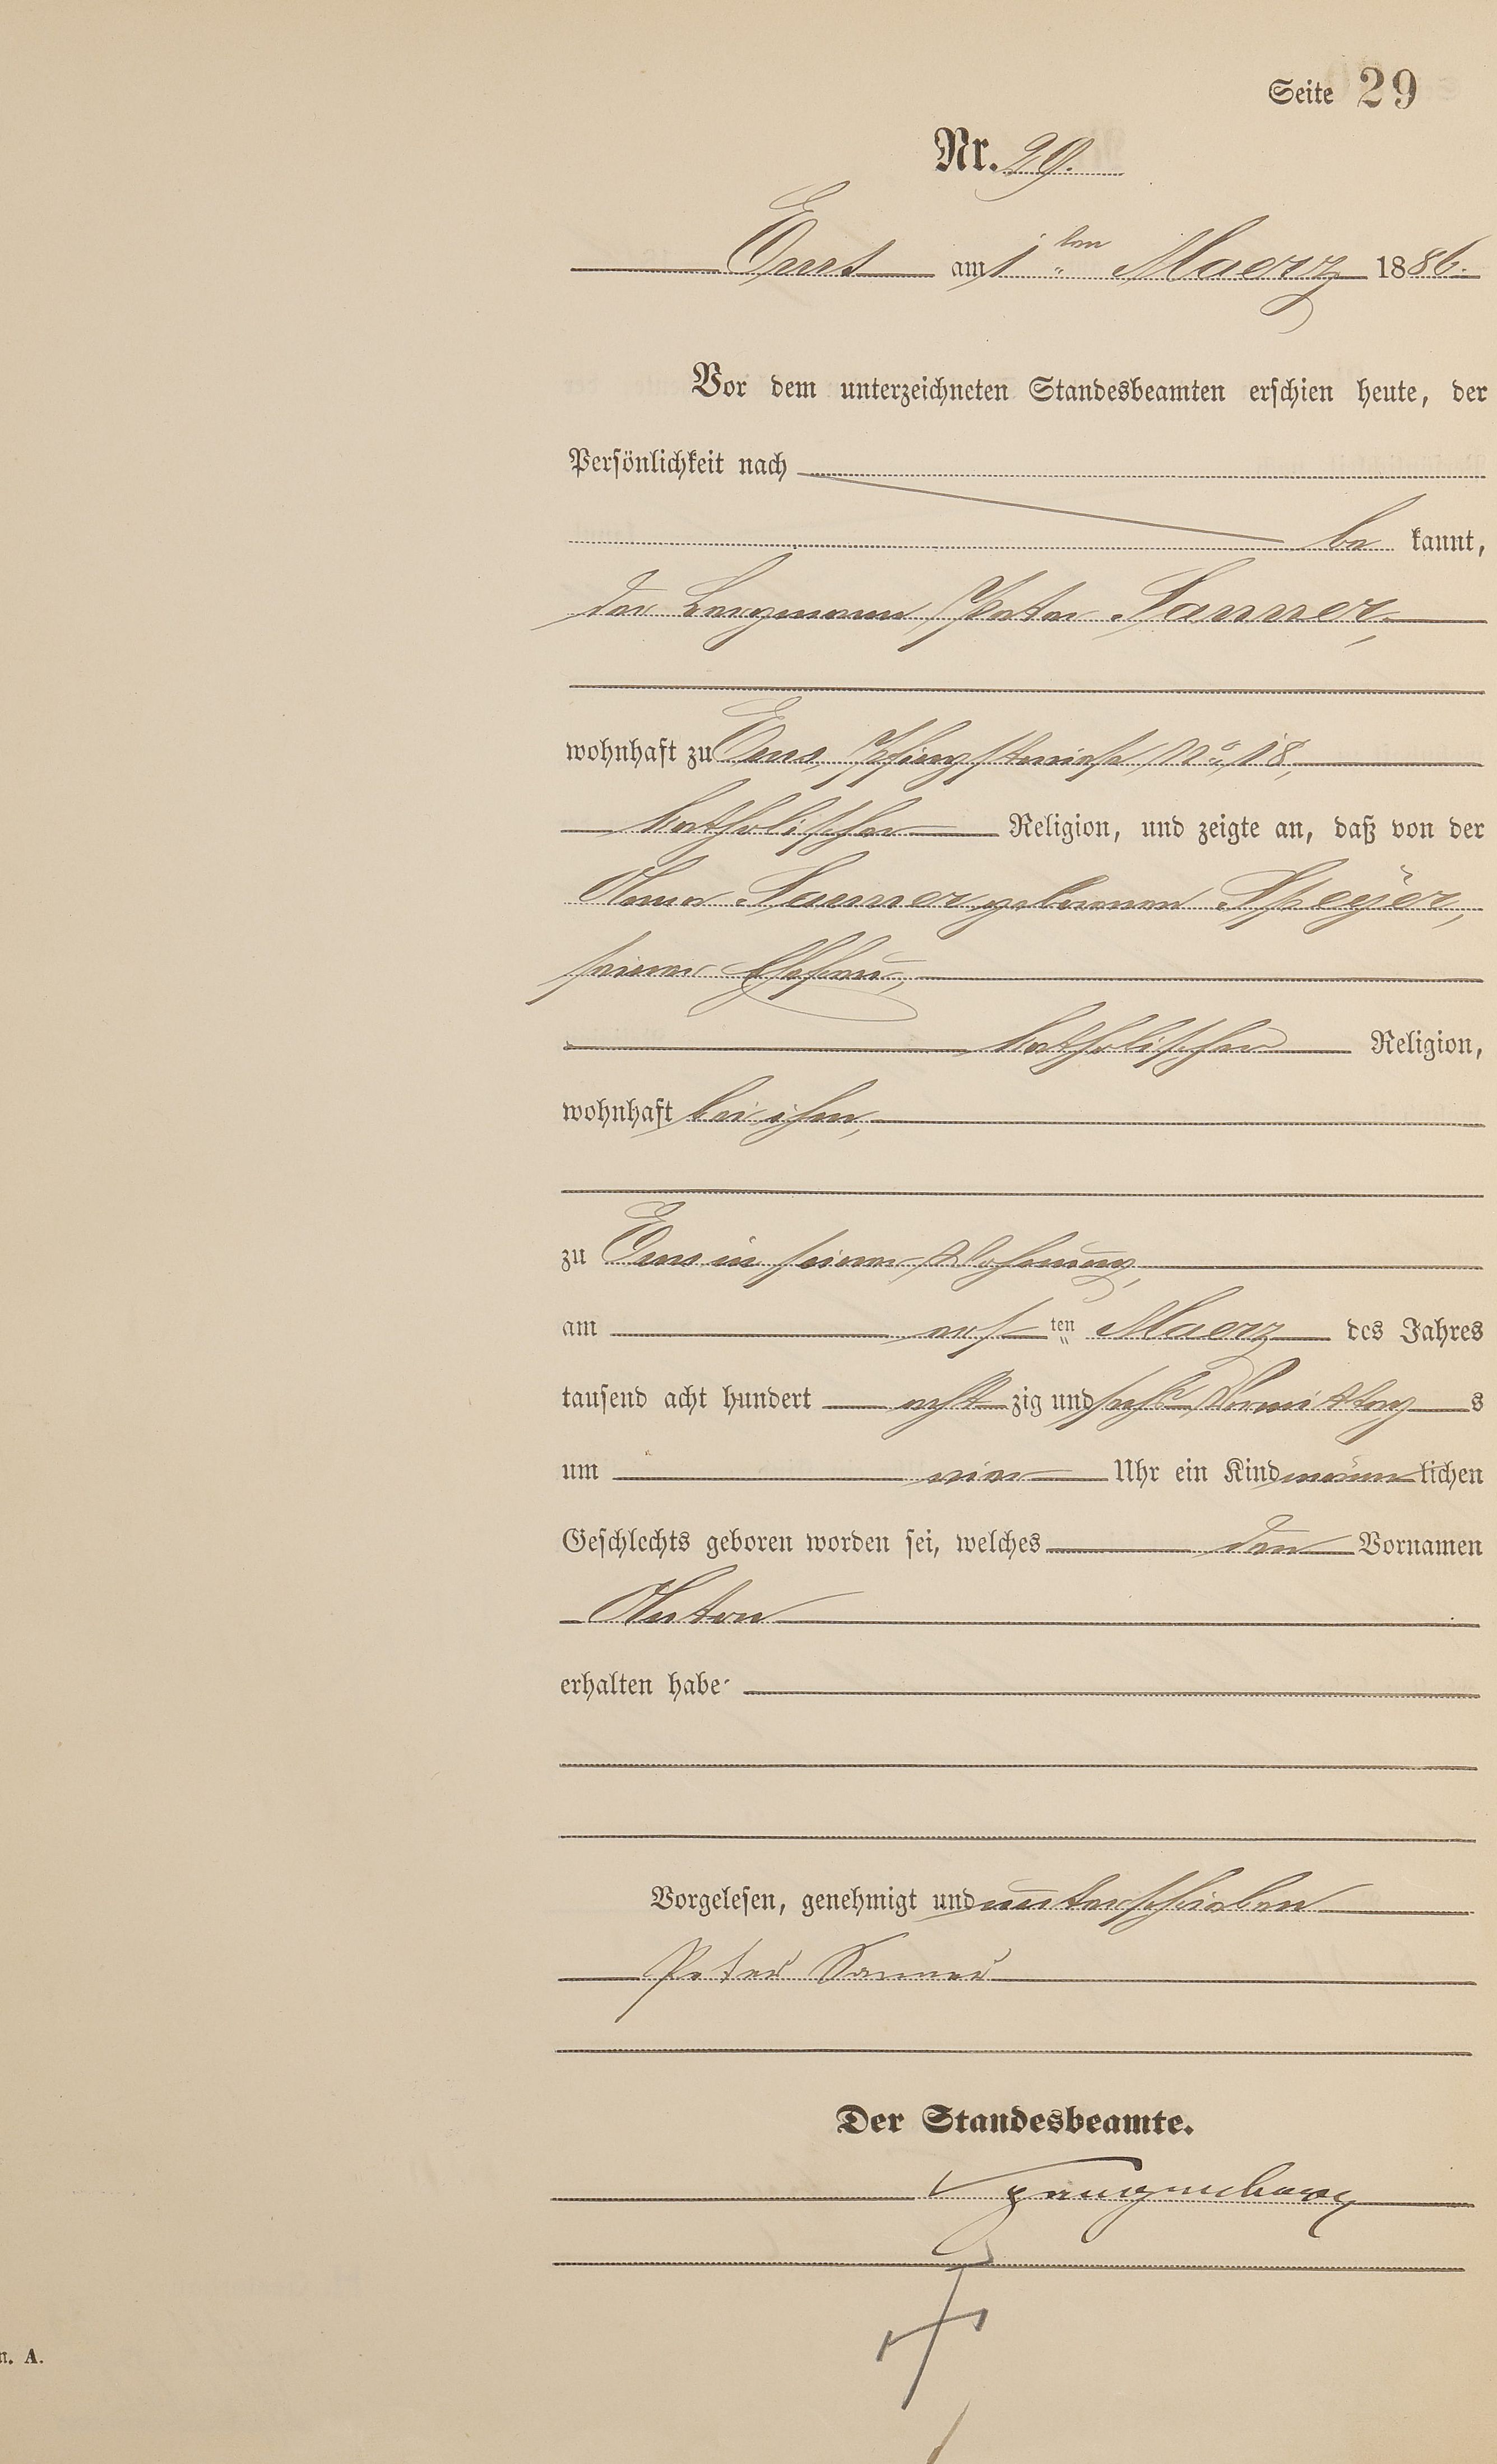 Seite 29
Nr. 29.
Ems am 1ten Maerz 1886.
Vor dem unterzeichneten Standesbeamten erschien heute, der
Persönlichkeit nach
be kannt,
der Bergmann Peter Sanner,
wohnhaft zu Ems, Pfingstwiese No. 18,
katholischer Religion, und zeigte an, daß von der
Anna Sanner geborenen Speyer,
seiner Ehefrau,
katholischer Religion,
wohnhaft bei ihm,
zu Ems in seiner Wohnung,
am ersten Maerz des Jahres
tausend acht hundert acht zig und sechs Vormittag s
um vier Uhr ein Kind männ lichen
Geschlechts geboren worden sei, welches den Vornamen
Anton
erhalten habe
Vorgelesen, genehmigt und unterschrieben
Peter Sanner
Der Standesbeamte.
n. A.